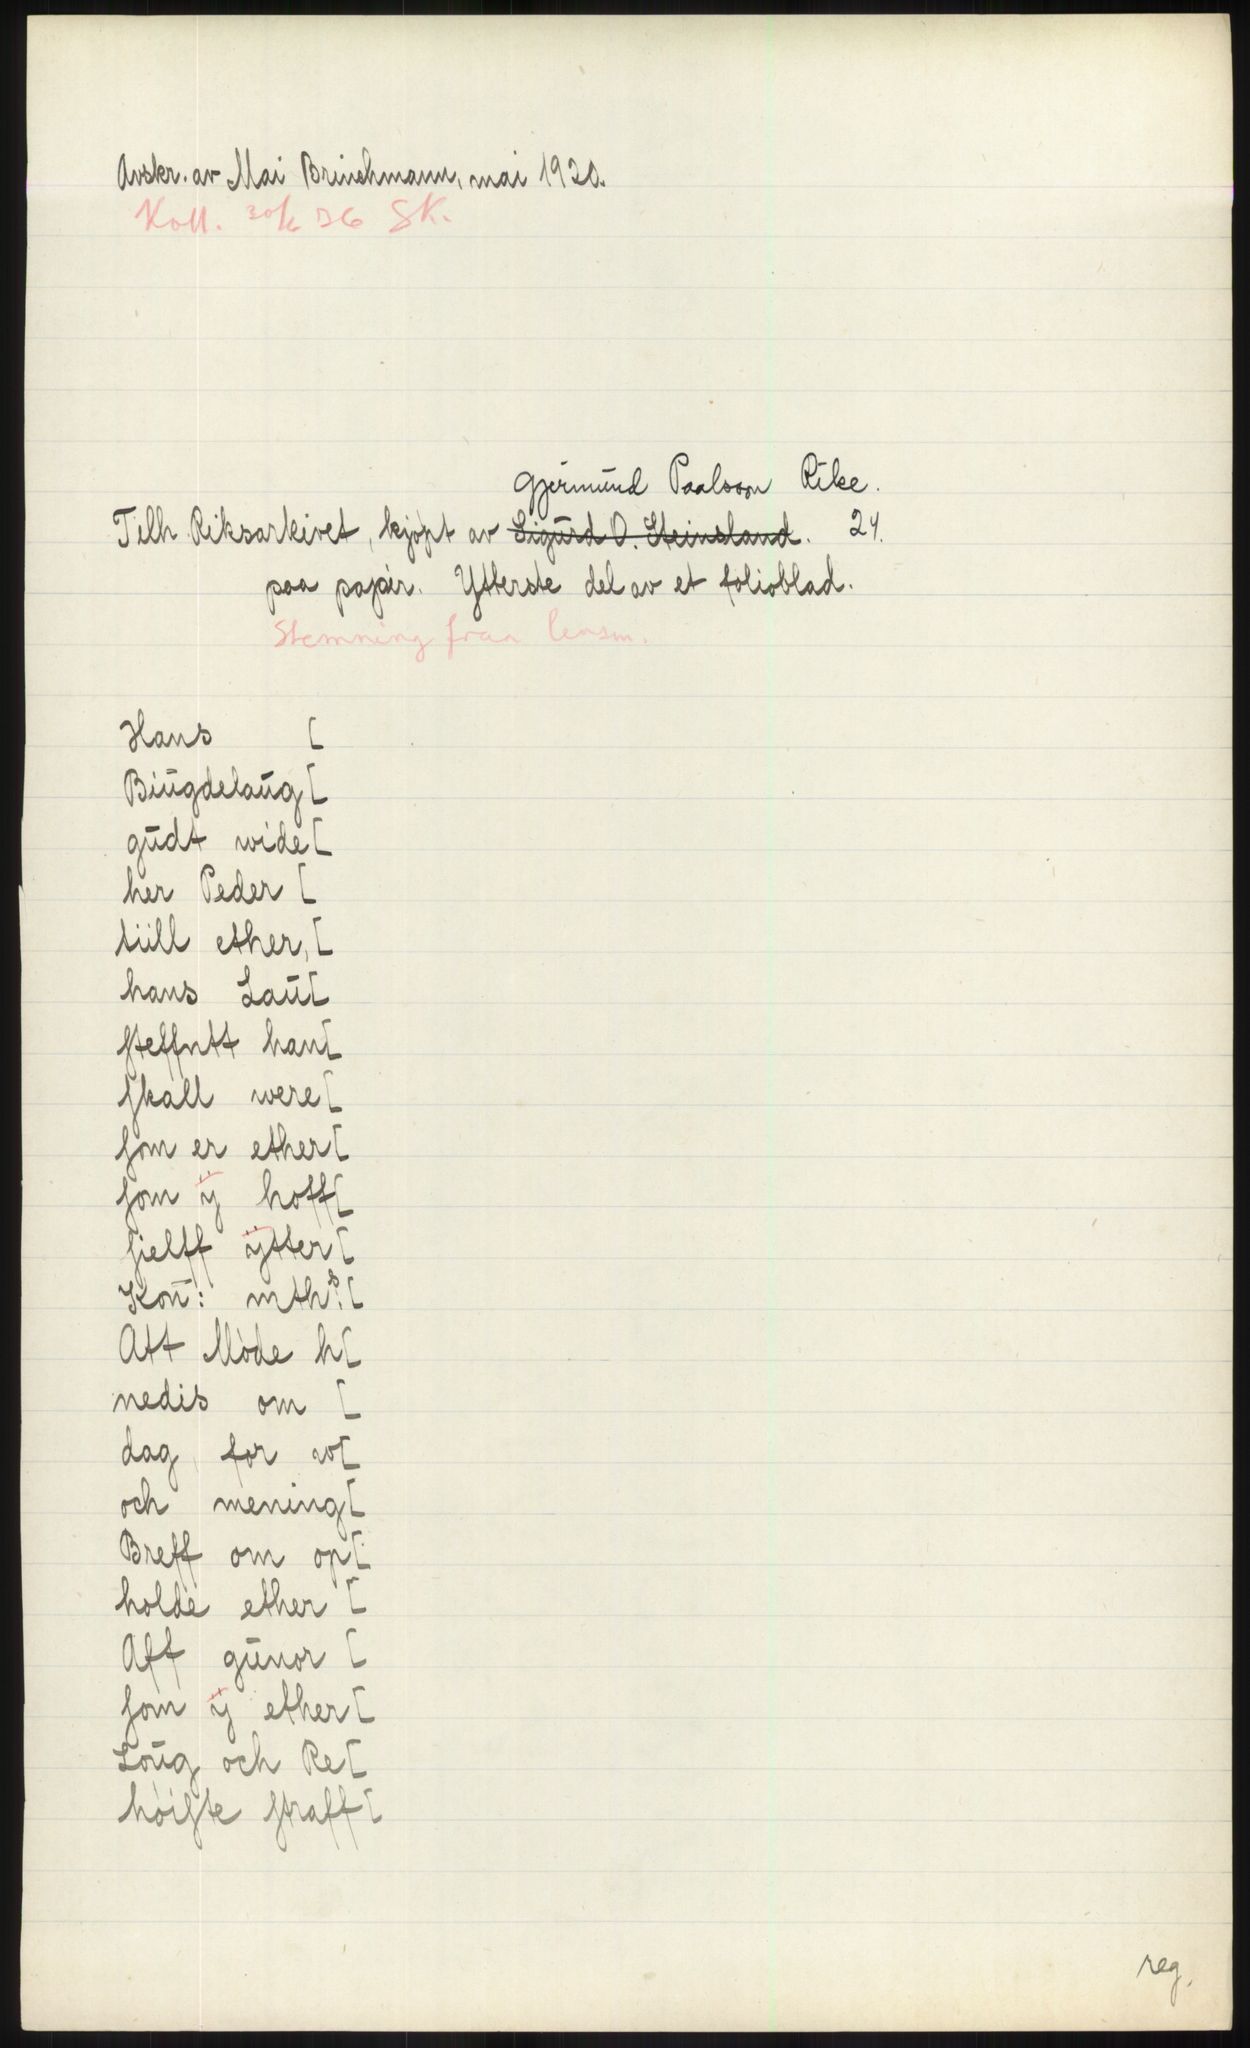 Avskr. av Mai Brinchmann, mai 1920.
Koll. 30/6 36 SK.
Gjermund Paalsson Rike.
Tilh. Riksarkivet, kjøpt av Sigurd O. Steinsland. 24.
paa papir. Ytterste del av et folioblad.
Stemning fraa lensm.
Hans [
Biŭgdelaŭg [
gŭdt wide [
her Peder [
tiill ether, [
hans Laŭ [
ſteffntt han [
ſkall were [
ſom er ether [
ſom ÿ hoff [
ſielff ÿtter [
Kon̄: mths: [
Att Møde h [
nedis om [
dag, for w [
och mening [
Breff om op [
holde ether [
Aff gŭnor [
ſom ÿ ether [
Loŭg och Re [
høiſte ſtraff [
reg.